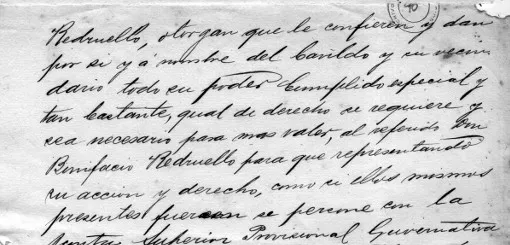 40
Redruello, otorgan que le confieren y dan
por si y á nombre del Cavildo y su vecin
dario todo su poder Cumplido especial y
tan bastante, qual de derecho se requiere y
sea necesario para mas valer, al referido Don
Bonifacio Redruello para que representando
su accion y derecho, como si ellos mismos
presentes fueran se persone con la
Junta Superior Provisional Guvernativa